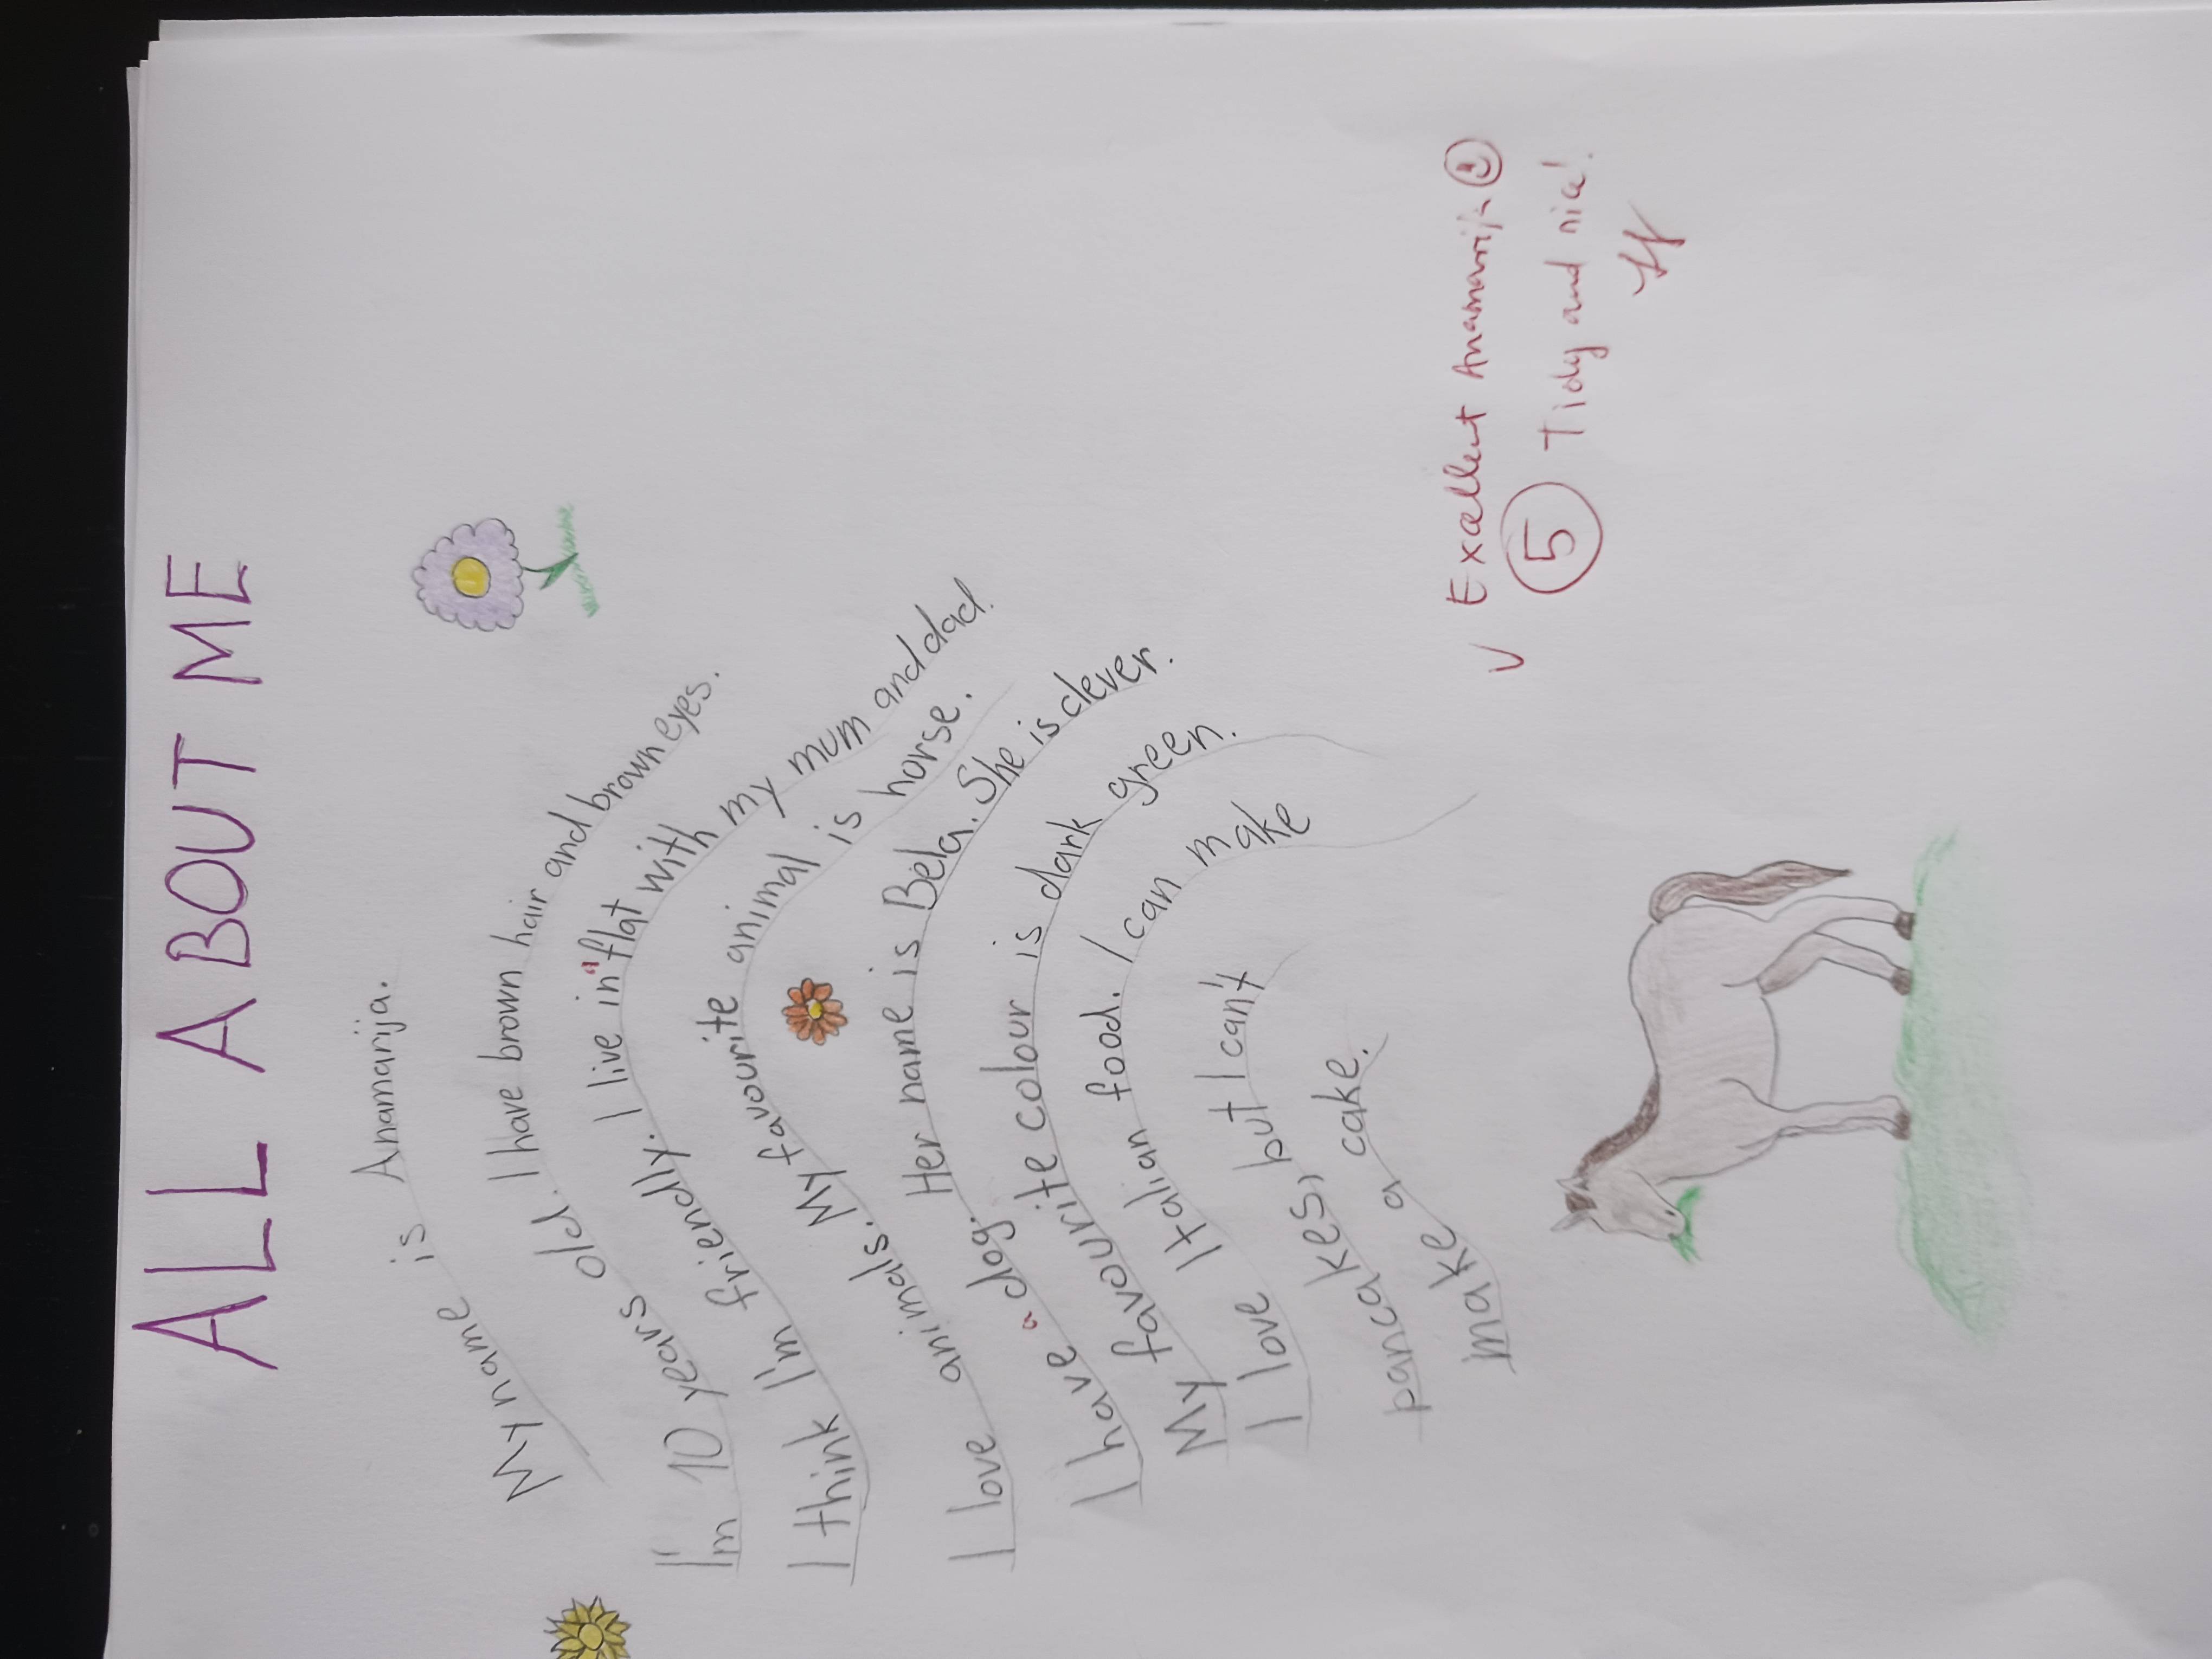 ALL ABOUT ME
My name is Anamarija.
I'm 10 years old. I have brown hair and brown eyes.
I think I'm friendly. I live in a flat with my mum and dad.
I love animals. My favourite animal is horse.
I have a dog. Her name is Bela. She is clever.
My favourite colour is dark green.
I love Italian food. I can make
pancakes, but I can't
make a cake.
V Excellent Anamarija
5 Tidy and nice!